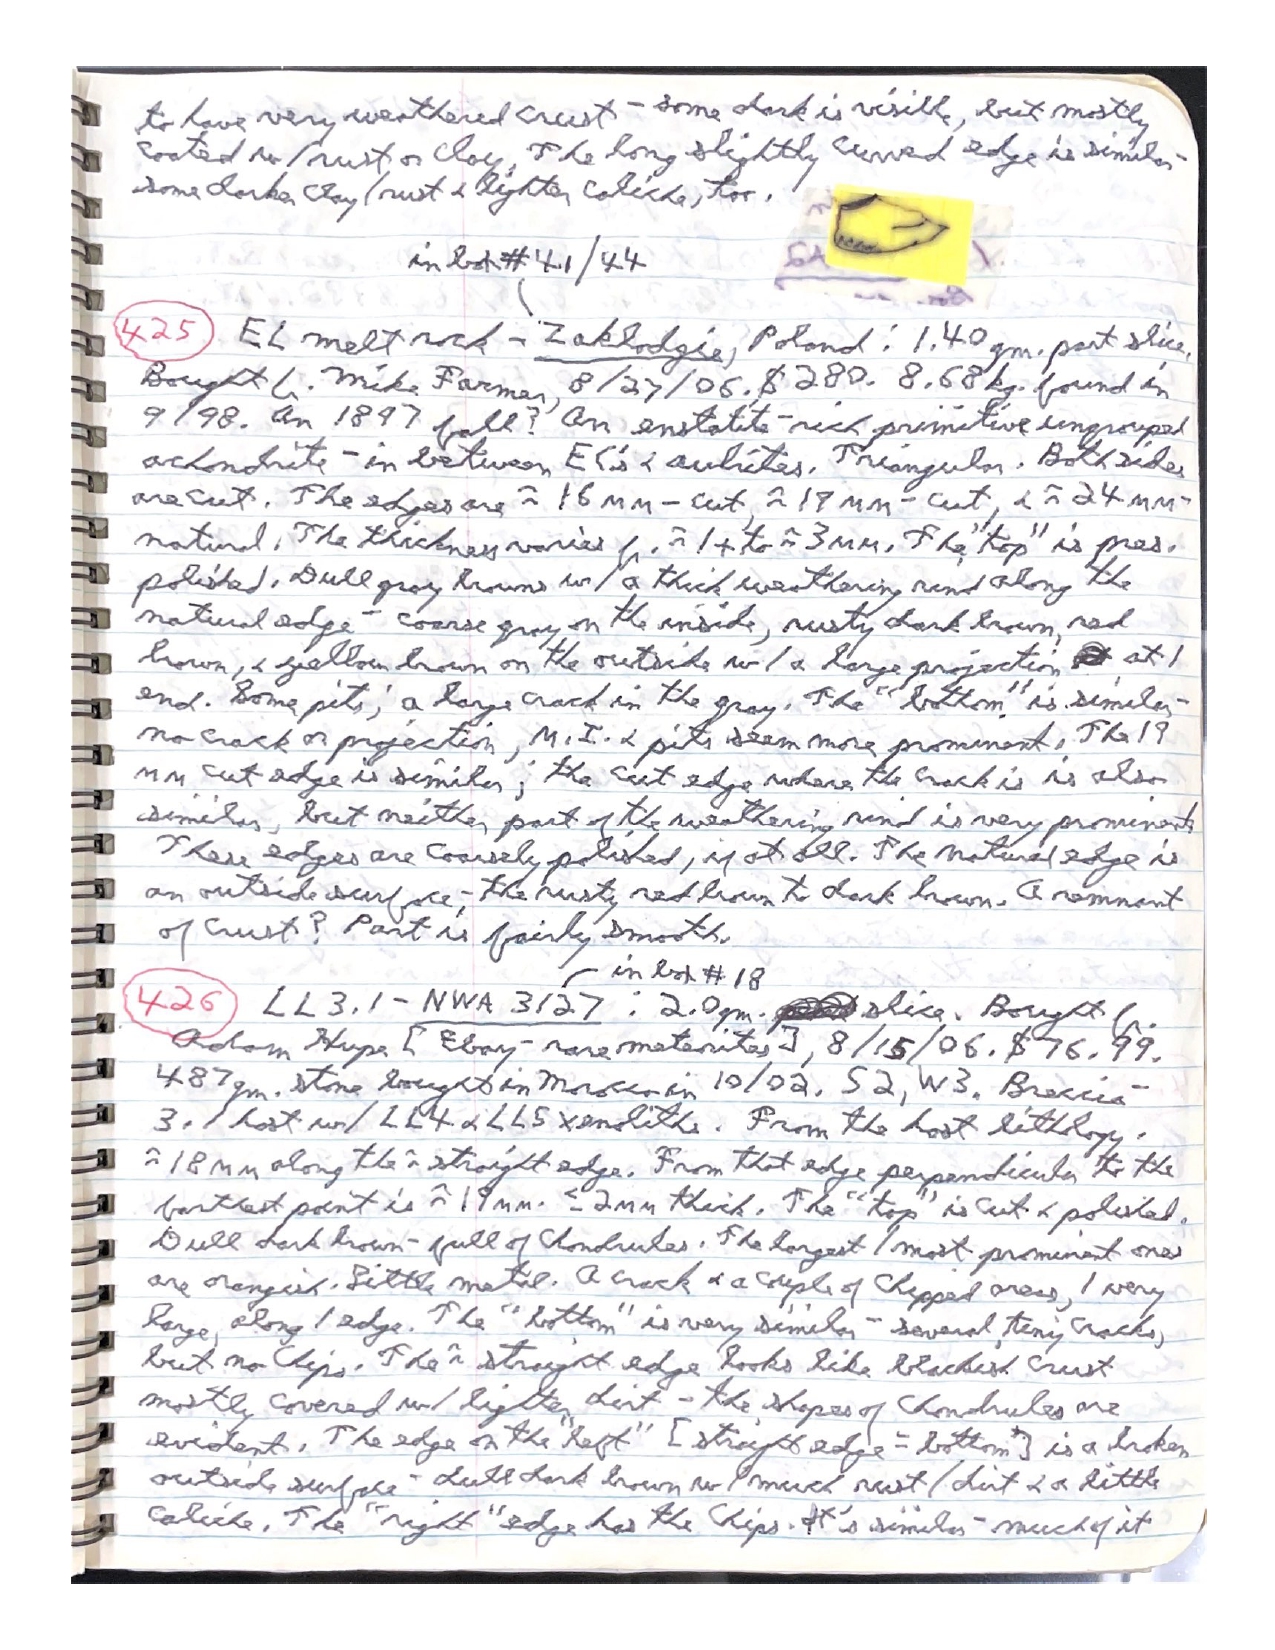 to have very weathered crust - some dark is visible, but mostly
coated w/ rust or clay. The long slightly curved edge is similar -
some darker clay/rust & lighter caliche, too.
in box #41/44
425 EL melt rock - Zaklodzie, Poland: 1.40 gm. part slice.
Bought f. Mike Farmer, 8/27/06. $280. 8.68 kg. found in
9/98. An 1897 fall? An enstatite-rich primitive ungrouped
achondrite - in between EL's & aubrites. Triangular. Both sides
are cut. The edges are ≈ 16 mm - cut, ≈ 19 mm - cut, & ≈ 24 mm -
natural. The thickness varies f. ≈ 1+ to ≈ 3 mm. The "top" is pres.
polished. Dull gray browns w/ a thick weathering rind along the
natural edge - coarse gray on the inside, rusty dark brown, red
brown, & yellow brown on the outside w/ a large projection at 1
end. Some pits; a large crack in the gray. The "bottom" is similar -
no crack or projection, M.I. & pits seem more prominent. The 19
mm cut edge is similar; the cut edge where the crack is is also
similar, but neither part of the weathering rind is very prominent.
These edges are coarsely polished, if at all. The natural edge is
an outside surface - the rusty red brown to dark brown. A remnant
of crust? Part is fairly smooth.
in box #18
426 LL3.1 - NWA 3127: 2.0 gm. slice. Bought f.
Adam Hupe [Ebay - raremeteorites], 8/15/06. $76.99.
487 gm. stone bought in Morocco in 10/02. S2, W3. Breccia -
3.1 host w/ LL4 & LL5 xenoliths. From the host lithology.
≈ 18 mm along the ≈ straight edge. From that edge perpendicular to the
farthest point is ≈ 19 mm. ≤ 2 mm thick. The "top" is cut & polished.
Dull dark brown - full of chondrules. The largest/most prominent ones
are orangish. Little metal. A crack & a couple of chipped areas, 1 very
large, along 1 edge. The "bottom" is very similar - several tiny cracks,
but no chips. The ≈ straight edge looks like blackish crust
mostly covered w/ lighter dirt - the shapes of chondrules are
evident. The edge on the "left" [straight edge = bottom] is a broken
outside surface - dull dark brown w/ much rust/dirt & a little
caliche. The "right" edge has the chips. It's similar - much of it